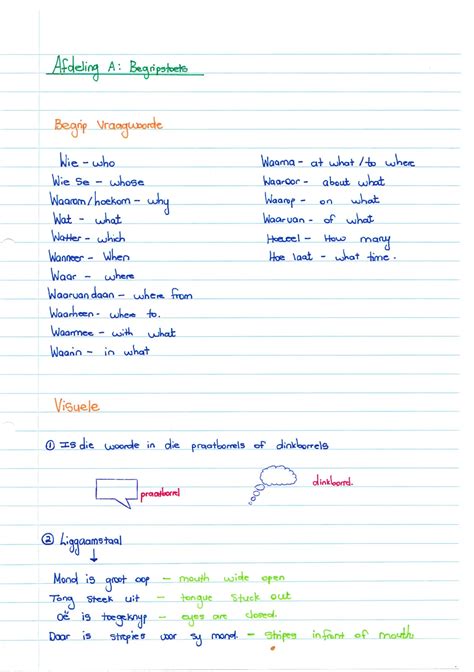 Afdeling A: Begripstoets
Begrip Vraagwoorde
Wie - who
Wie se - whose
Waarom/hoekom - why
Wat - what
Watter - which
Wanneer - When
Waar - where
Waarvandaan - where from
Waarheen - where to.
Waarmee - with what
Waarin - in what
Waarna - at what / to where
Waaroor - about what
Waarop - on what
Waarvan - of what
Hoeveel - How many
Hoe laat - what time.
Visuele
① Is die woorde in die praatborrels of dinkborrels
praatborrel
dinkborrel.
② Liggaamstaal
Mond is groot oop - mouth wide open
Tong steek uit - tongue stuck out
Oë is toegeknyp - eyes are closed.
Daar is strepies voor sy mond. - Stripes infront of mouth